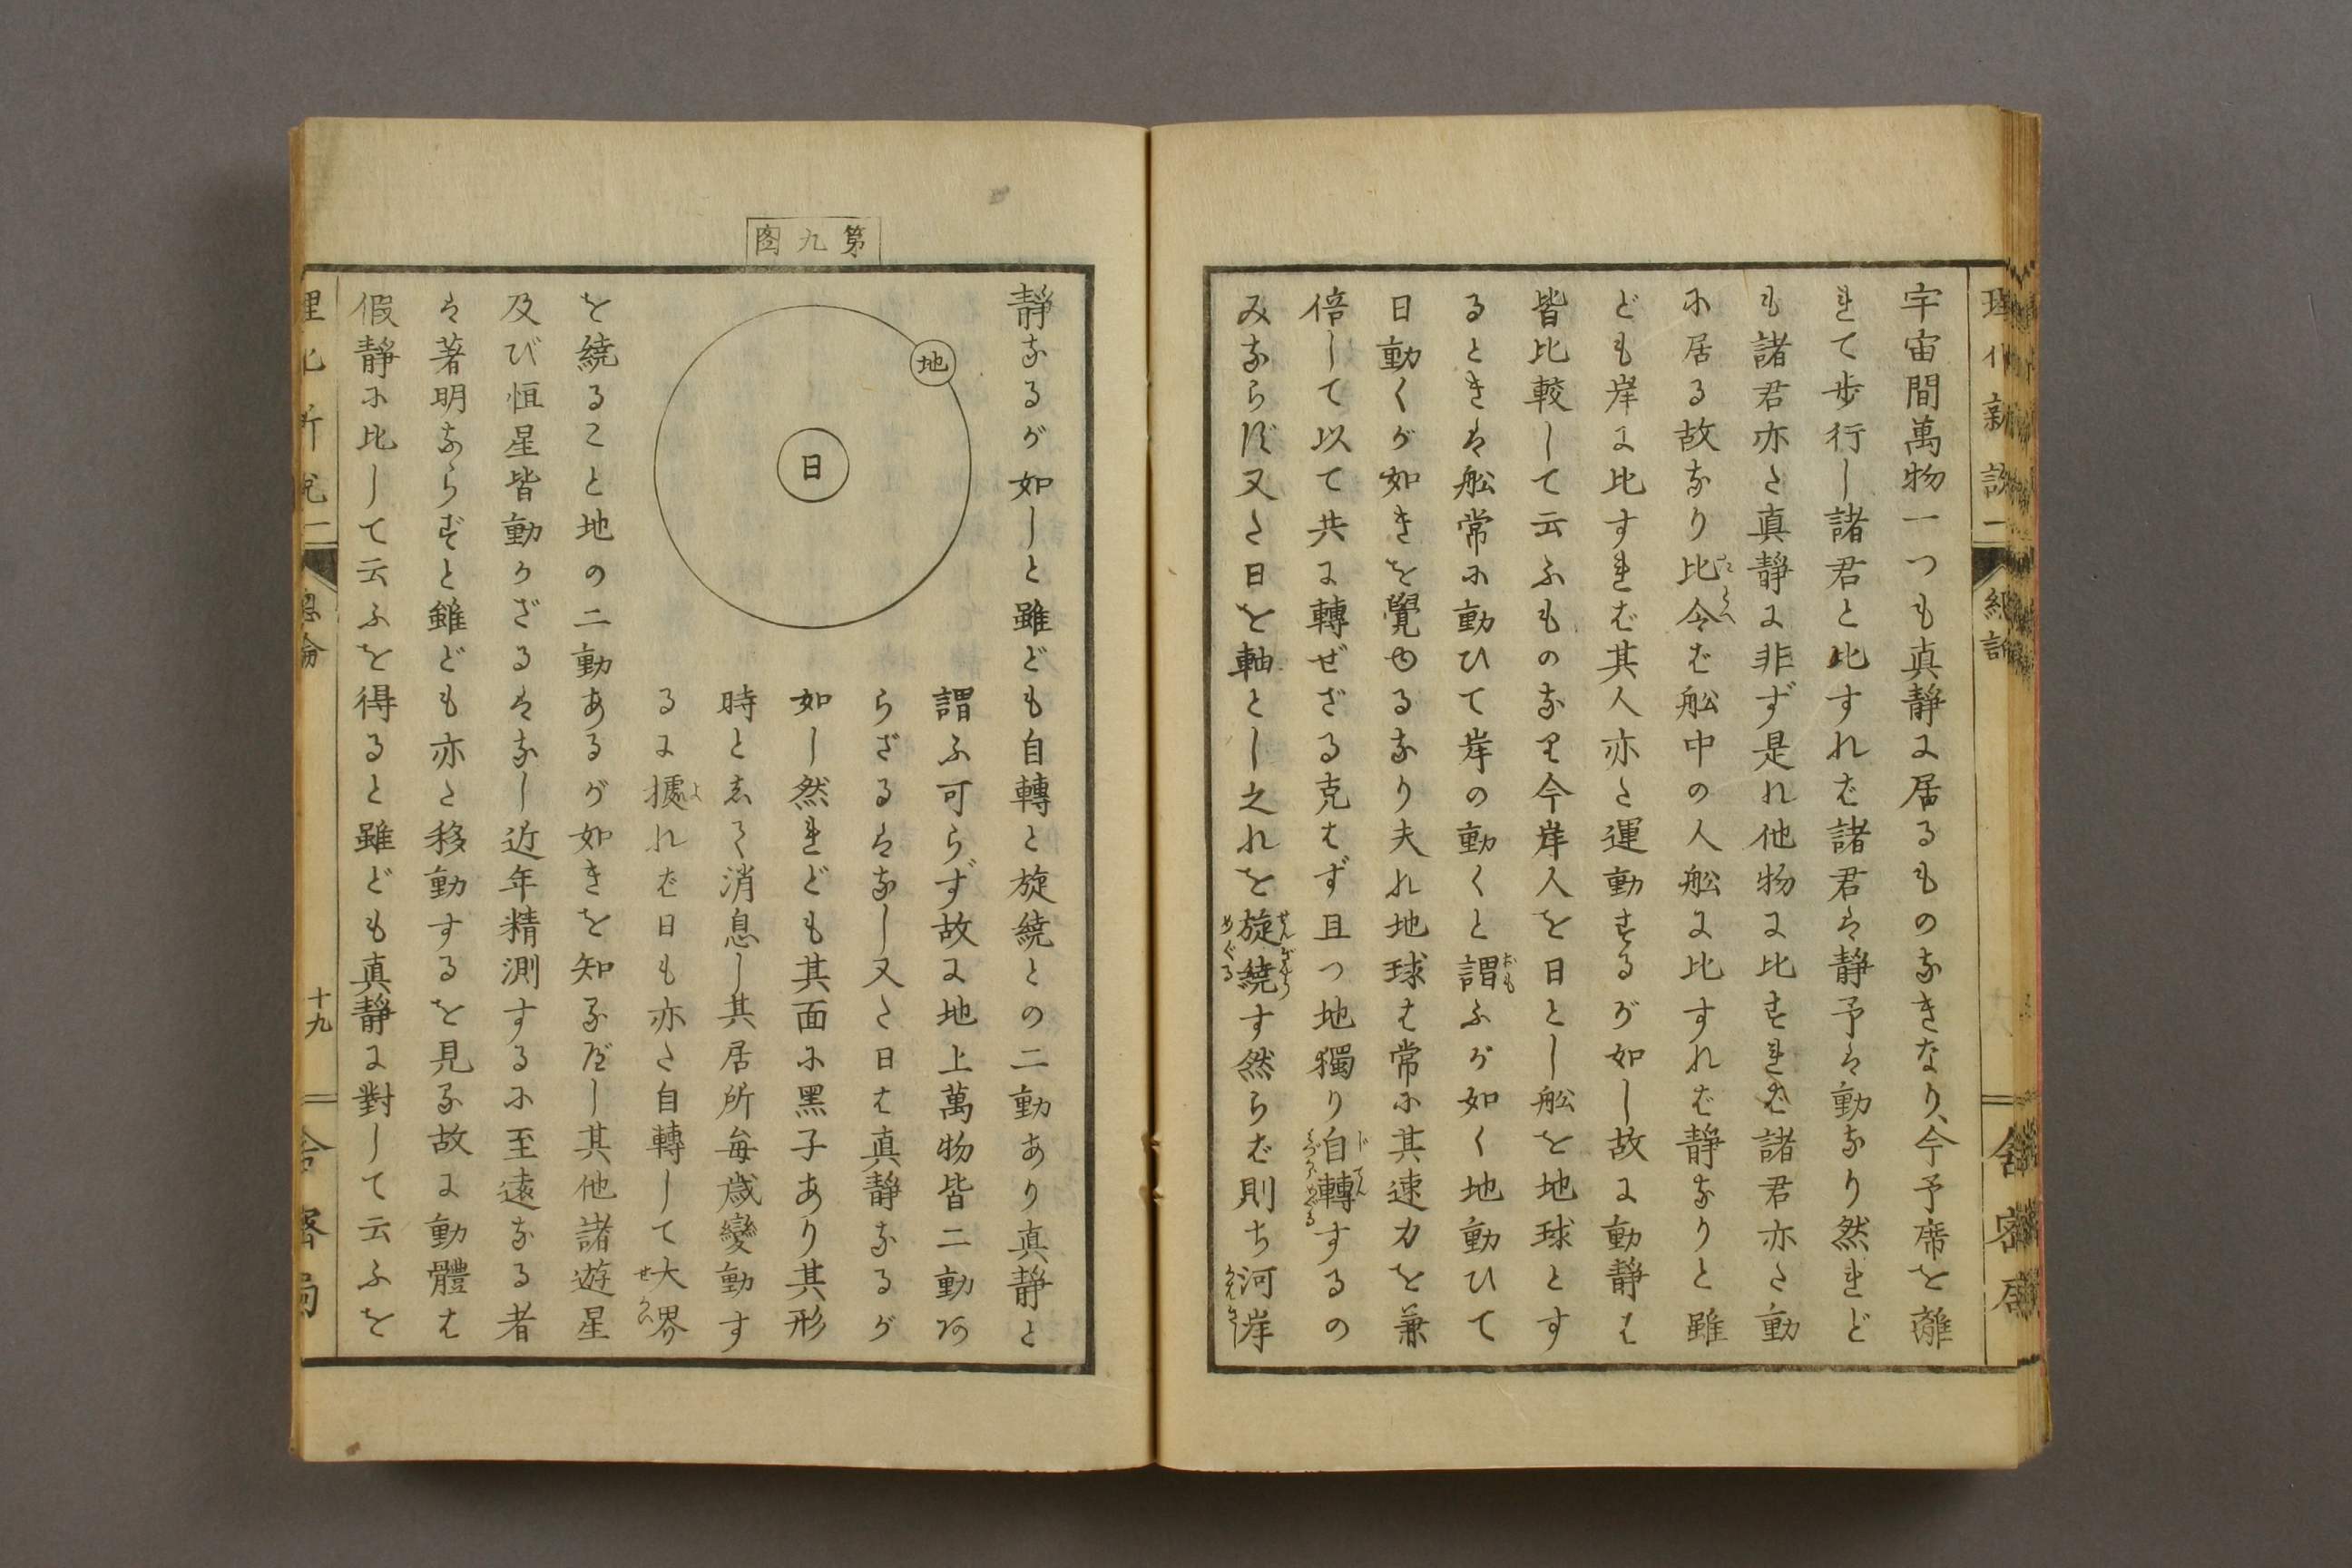 宇宙間萬物一つも真静に居るものなきなり、今予席を離
れて歩行し諸君と比すれば諸君は静予は動なり然れど
も諸君亦た真静に非ず是れ他物に比すれば諸君亦た動
に居る故なり比令ば舩中の人舩に比すれば静なりと雖
ども岸に比すれば其人亦た運動するが如し故に動静は
皆比較して云ふものなり今岸人を日とし舩を地球とす
るときは舩常に動ひて岸の動くと謂ふが如く地動ひて
日動くが如きを覺ゆるなり夫れ地球は常に其速力を兼
倍して以て共に轉ぜざる克はず且つ地獨り自轉するの
みならず又た日を軸とし之れを旋繞す然らば則ち河岸
第九圖
地
日
静なるが如しと雖ども自轉と旋繞との二動あり真静と
謂ふ可らず故に地上萬物皆二動あ
らざるはなし又た日は真静なるが
如し然れども其面に黑子あり其形
時として消息し其居所毎歳變動す
るに據れば日も亦た自轉して大界
を繞ること地の二動あるが如きを知るべし其他諸遊星
及び恒星皆動かざるはなし近年精測するに至遠なる者
は著明ならずと雖ども亦た移動するを見る故に動體は
假静に比して云ふを得ると雖ども真静に對して云ふを
十九